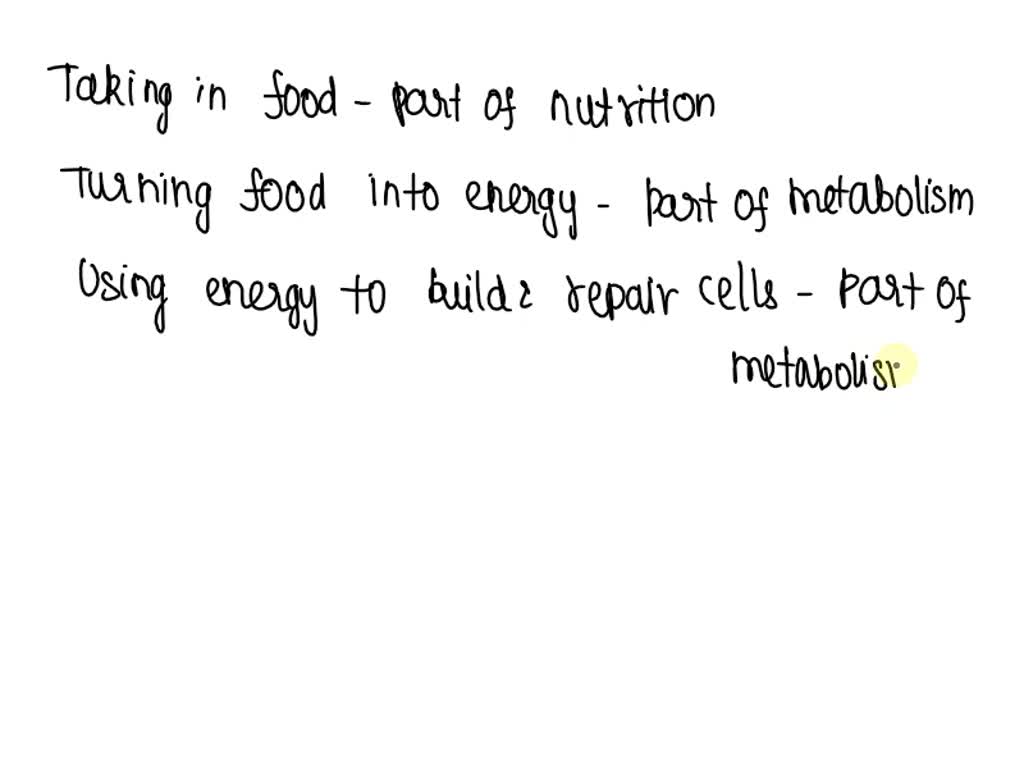 Taking in food - part of nutrition
Turning food into energy - part of metabolism
Using energy to build & repair cells - part of
metabolis